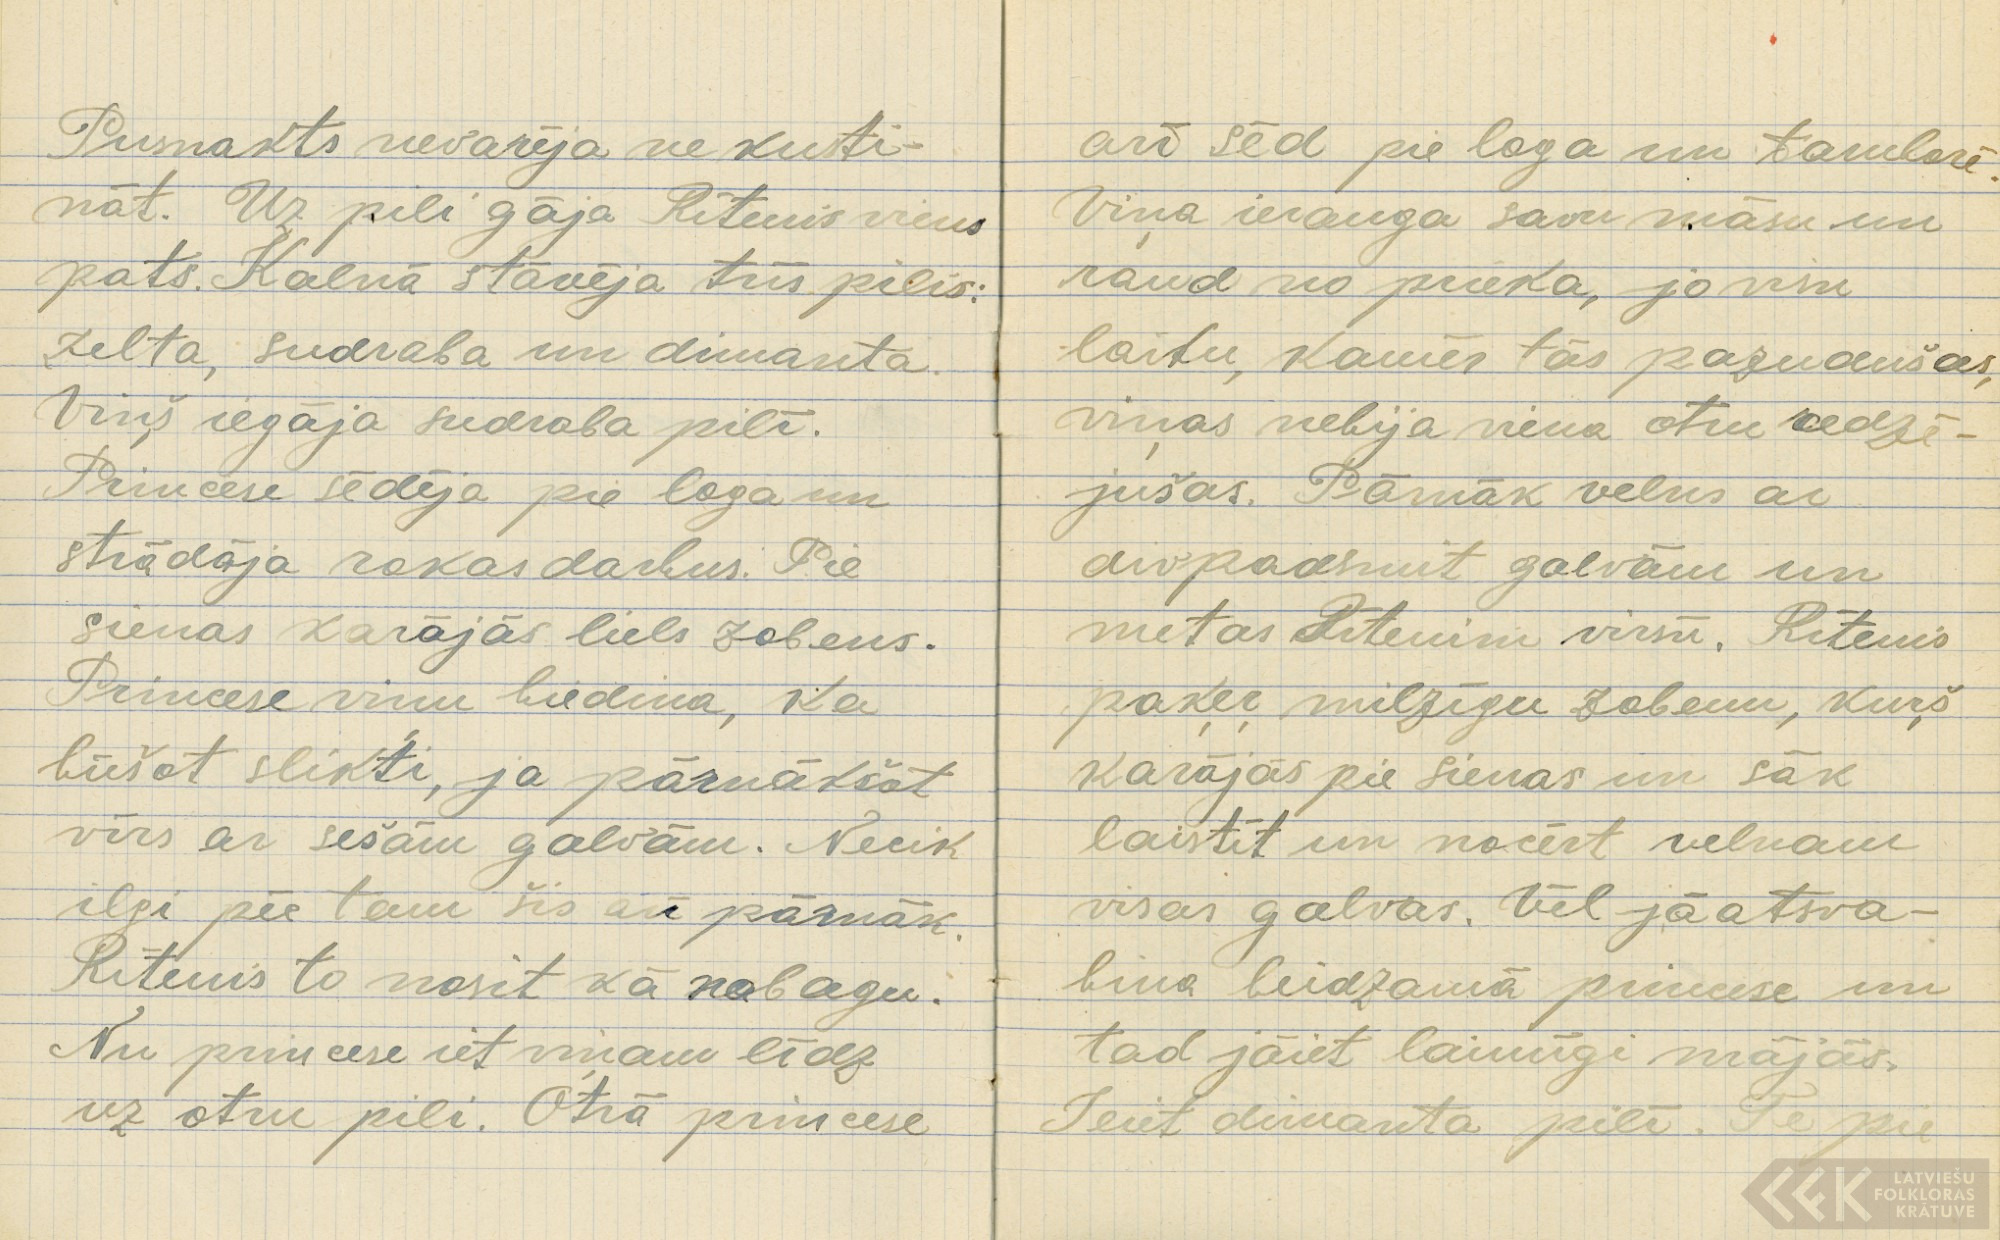 Pusnakts nevarēja ne kusti-
nāt. Uz pili gāja Rītenis viens
pats. Kalnā stāvēja trīs pilis:
zelta, sudraba un dimanta.
Viņš iegāja sudraba pilī.
Princese sēdēja pie loga un
strādāja rokasdarbus. Pie
sienas karājās liels zobens.
Princese viņu biedina, ka
būšot slikti, ja pārnākšot
vīrs ar sešām galvām. Necik
ilgi pēc tam šis arī pārnāk.
Rītenis to nosit kā nabagu.
Nu princese iet viņam līdz
uz otru pili. Otrā princese
arī sēd pie loga un tamborē.
Viņa ierauga savu māsu un
raud no prieka, jo visu
laiku, kamēr tās pazudušas,
viņas nebija viena otru redzē-
jušas. Pārnāk velns ar
divpadsmit galvām un
metas Rītenim virsū. Rītenis
paķeŗ milzīgu zobenu, kuŗš
karājās pie sienas un sāk
laistīt un nocērt velnam
visas galvas. Vēl jāatsva-
bina beidzamā princese un
tad jāiet laimīgi mājās.
Ieiet dimanta pilī. Te pie
LATVIEŠU
FOLKLORAS
KRĀTUVE